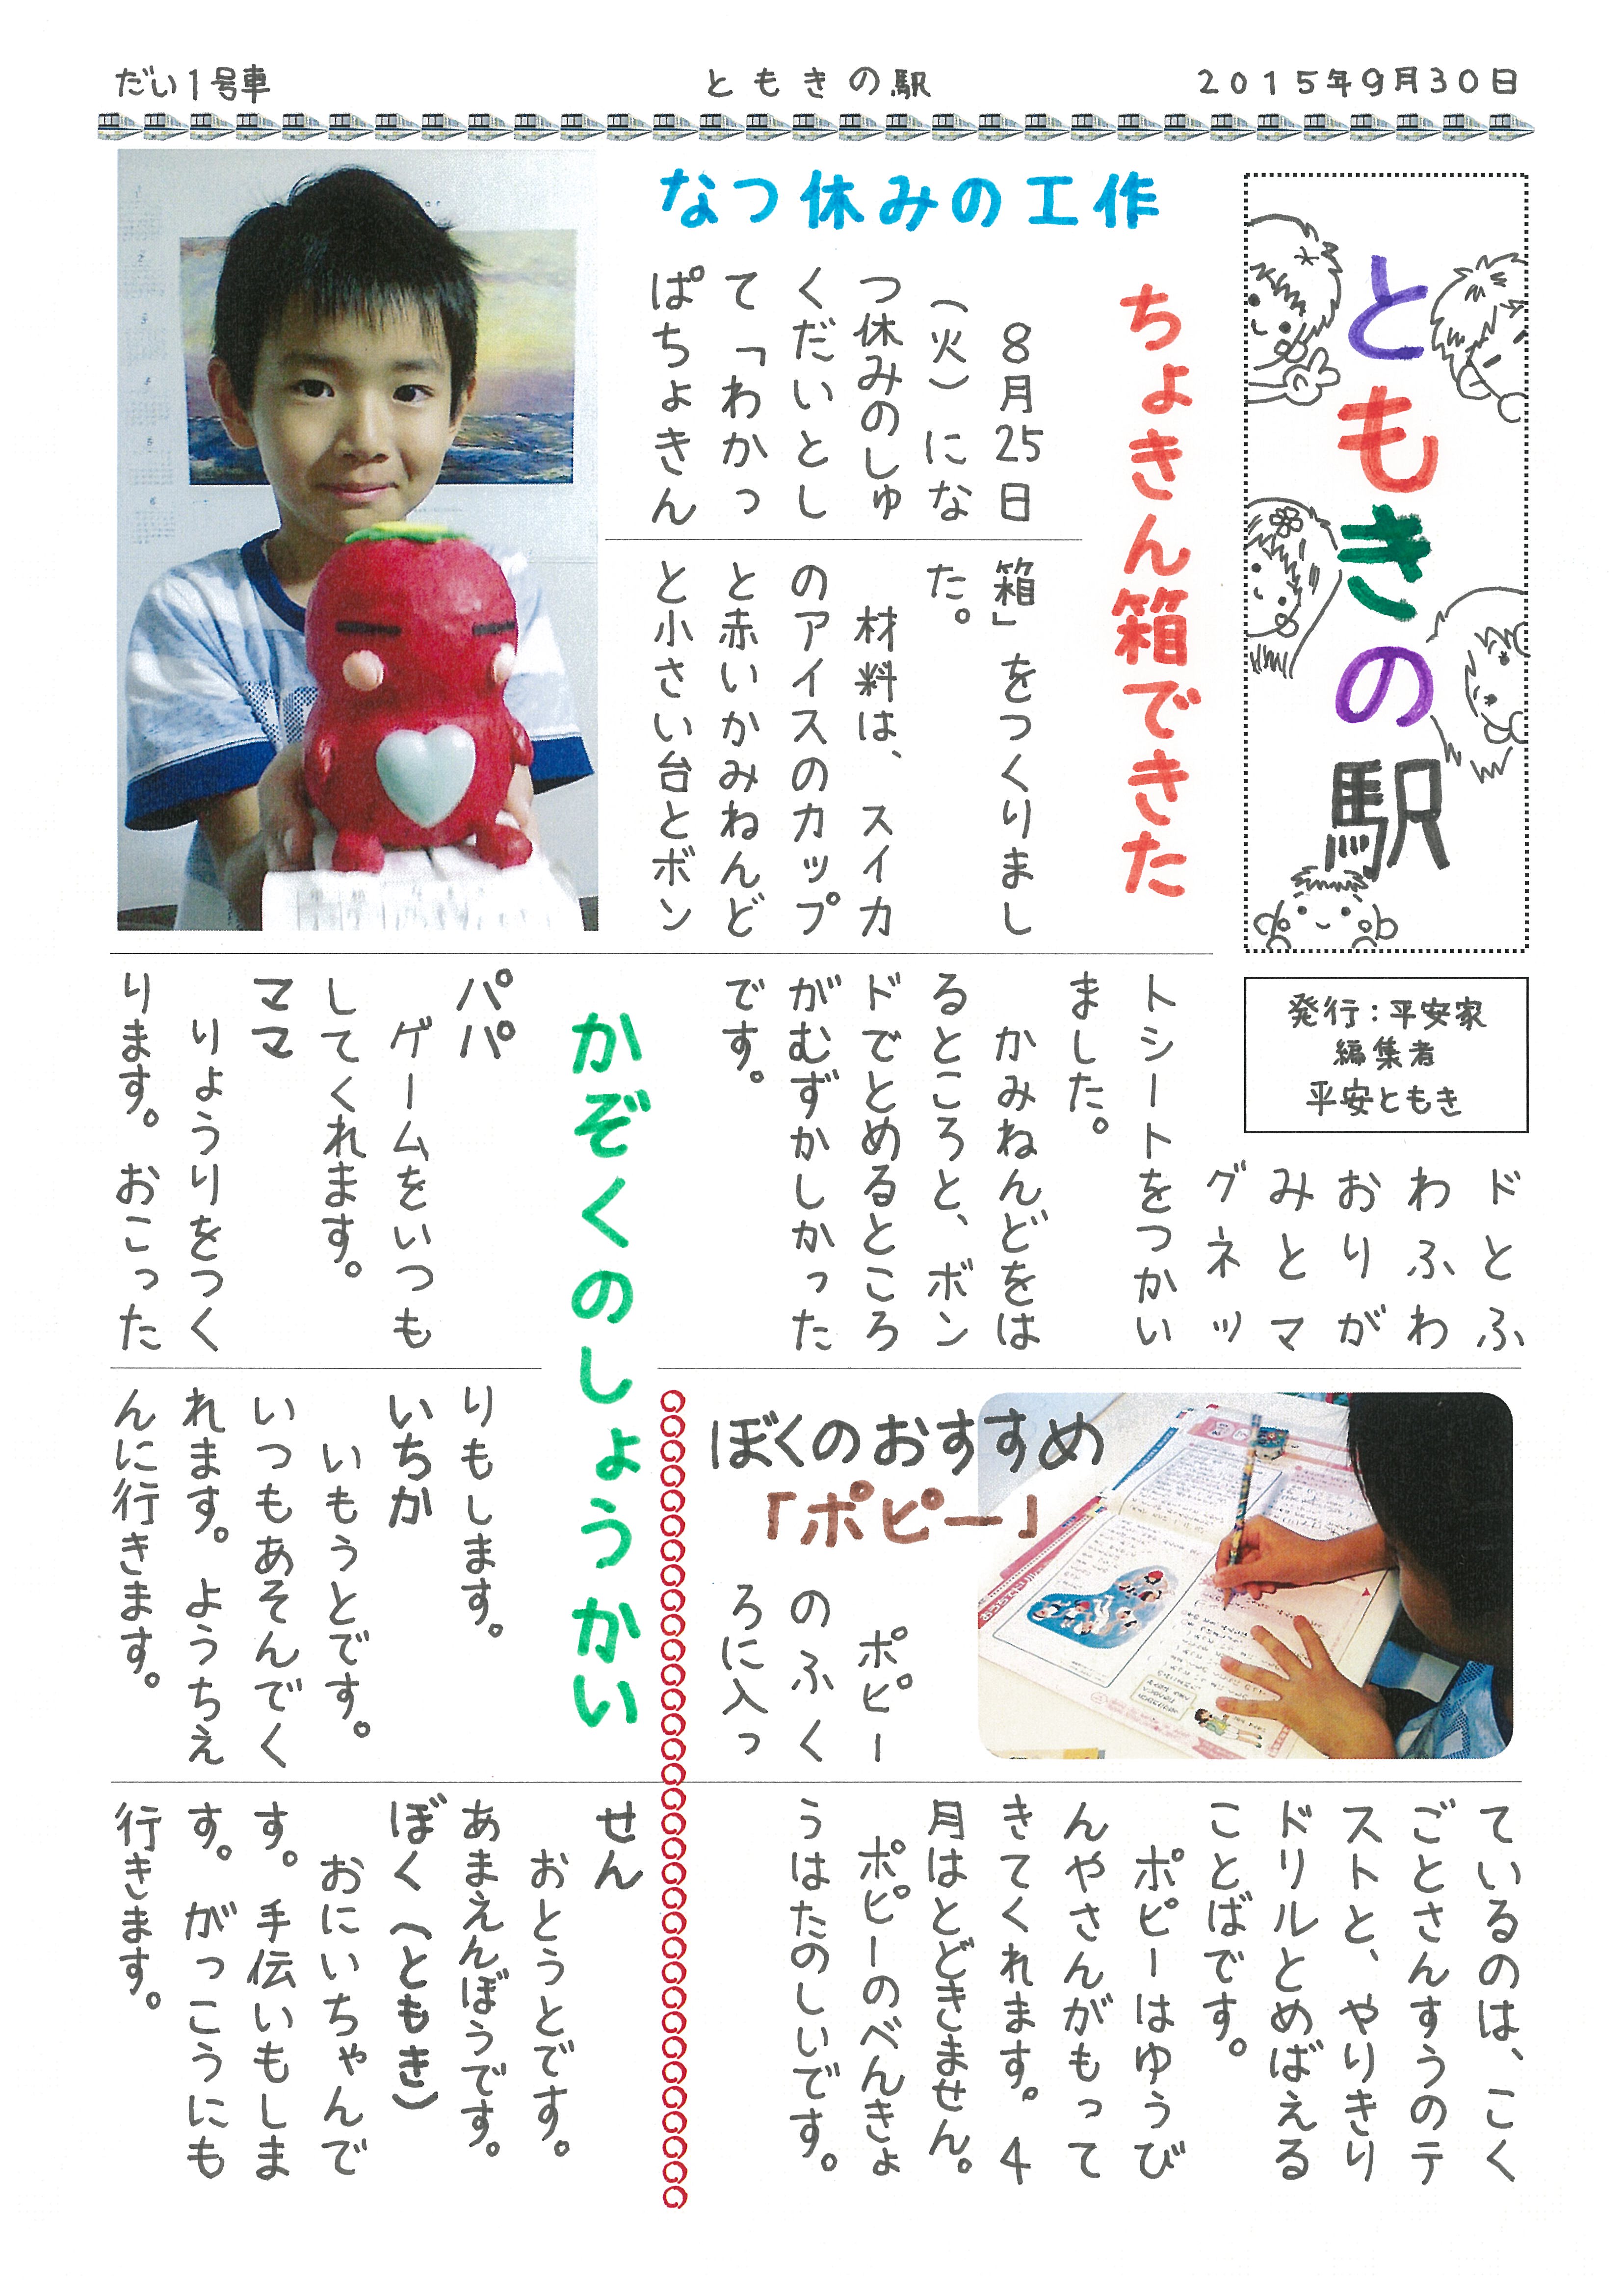 だい1号車
ともきの駅
2015年9月30日
ともきの駅
発行：平安家
編集者
平安ともき
なつ休みの工作
ちょきん箱できた
8月25日
（火）にな
つ休みのしゅ
くだいとし
て「わかっ
ぱちょきん
箱」をつくりまし
た。
材料は、スイカ
のアイスのカップ
と赤いかみねんど
と小さい台とボン
ドとふ
わふわ
おりが
みとマ
グネッ
トシートをつかい
ました。
かみねんどをは
るところと、ボン
ドでとめるところ
がむずかしかった
です。
かぞくのしょうかい
パパ
ゲームをいつも
してくれます。
ママ
りょうりをつく
ります。おこった
りもします。
いちか
いもうとです。
いつもあそんでく
れます。ようちえ
んに行きます。
せん
おとうとです。
あまえんぼうです。
ぼく（ともき）
おにいちゃんで
す。手伝いもしま
す。がっこうにも
行きます。
ぼくのおすすめ
「ポピー」
ポピー
のふく
ろに入っ
ているのは、こく
ごとさんすうのテ
ストと、やりきり
ドリルとめばえる
ことばです。
ポピーはゆうび
んやさんがもって
きてくれます。4
月はとどきません。
ポピーのべんきょ
うはたのしいです。